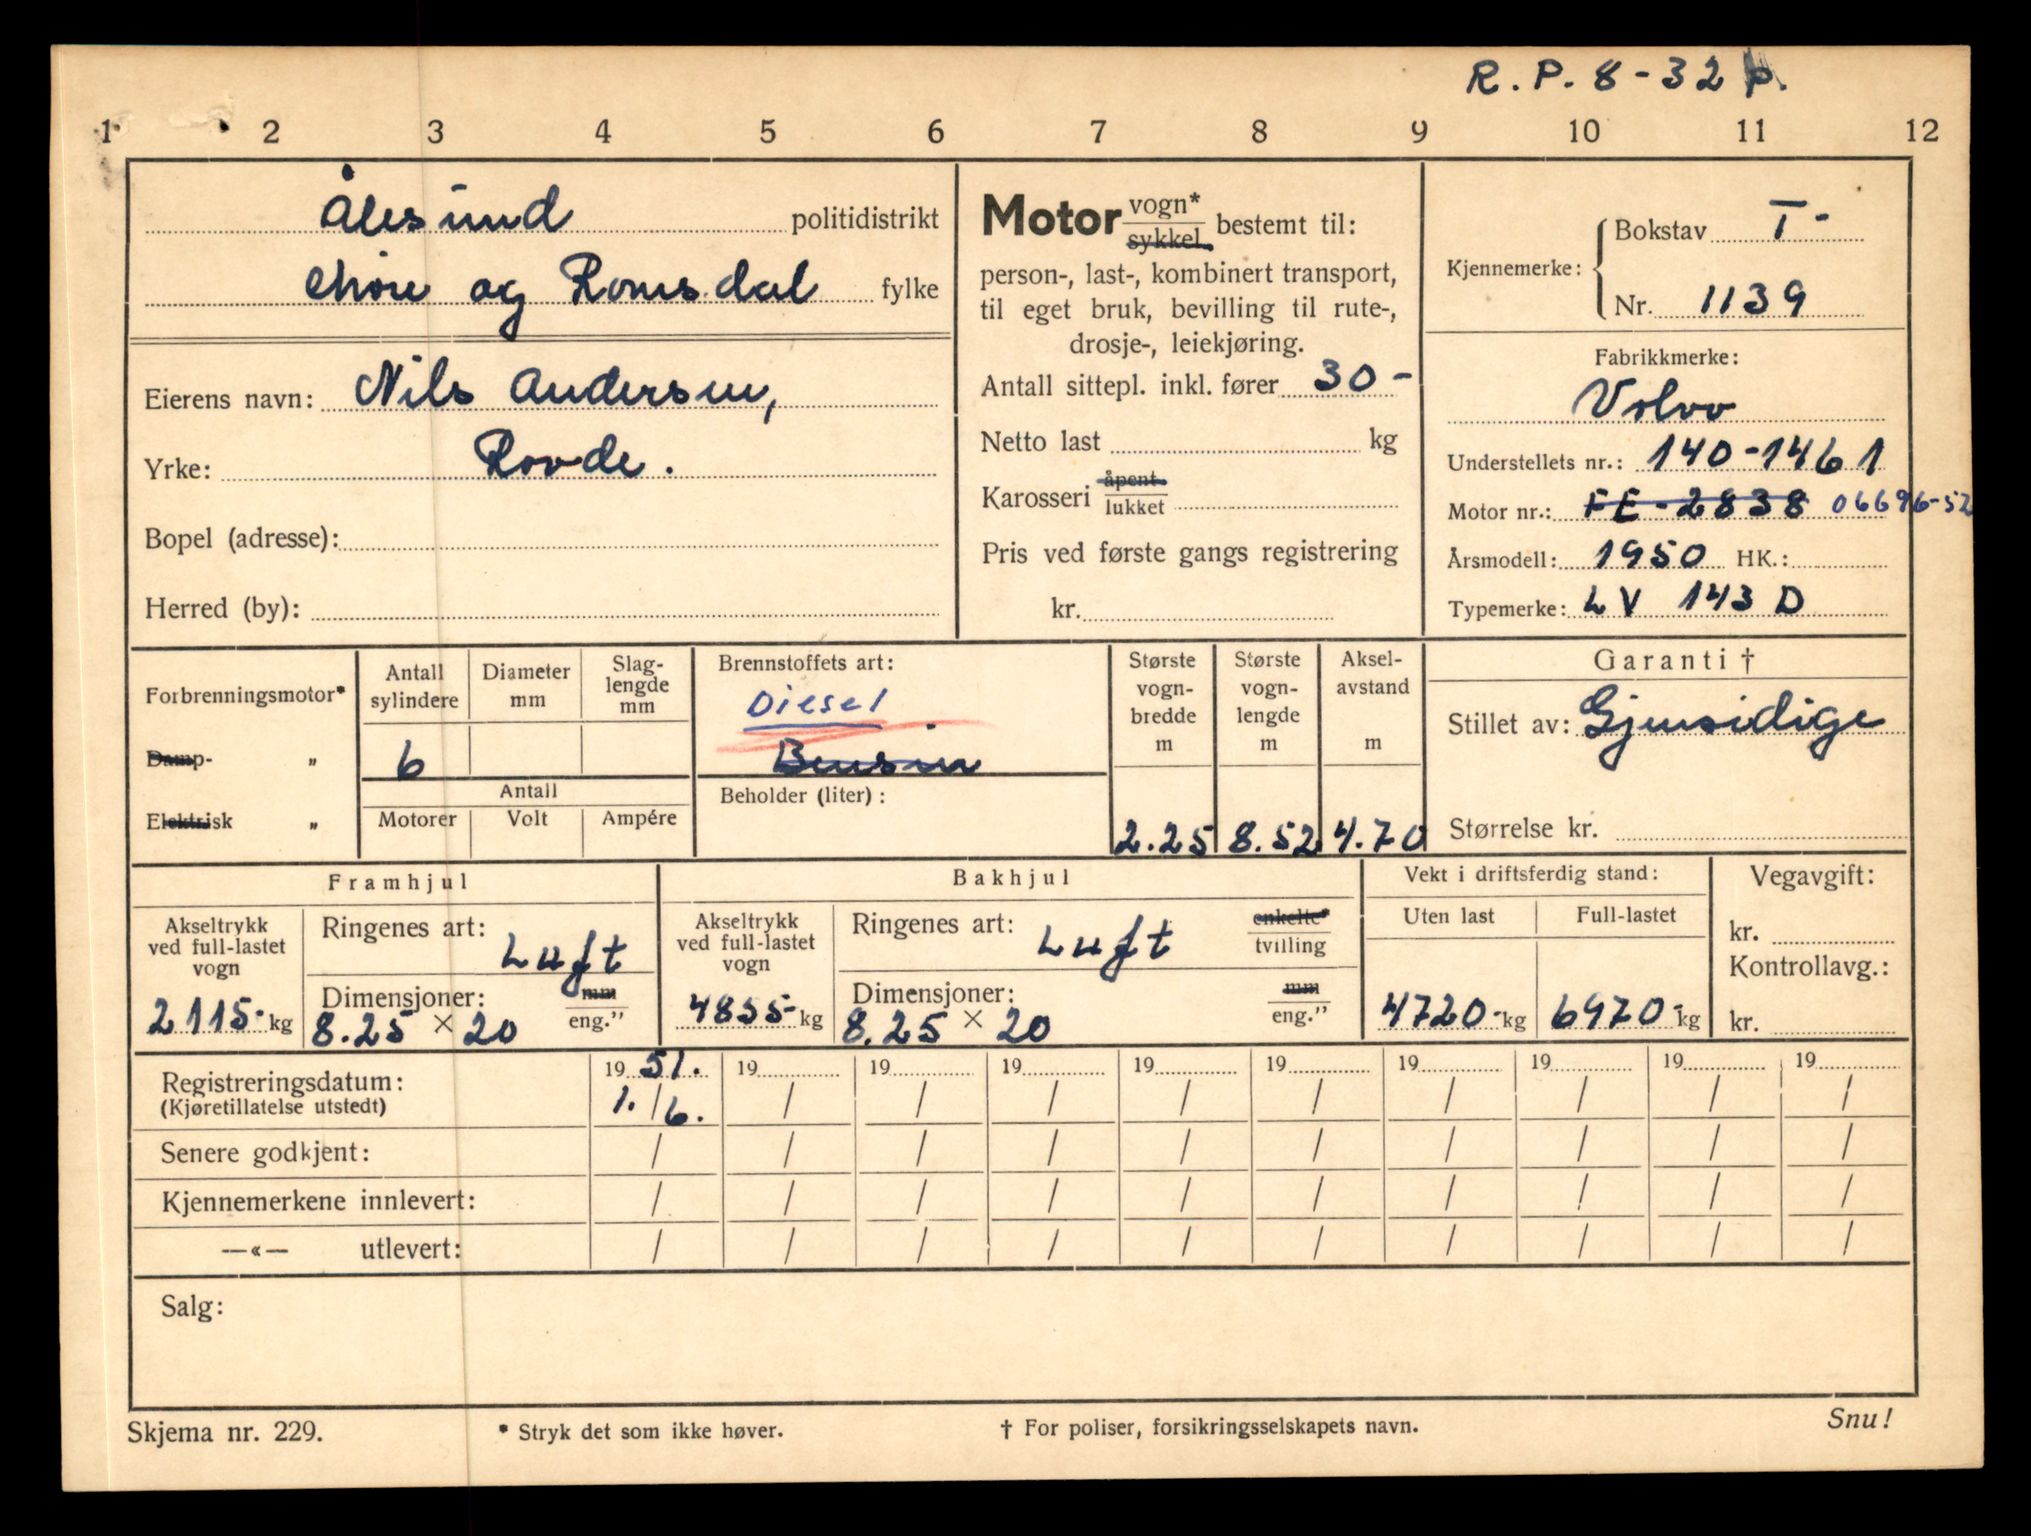 R. P. 8-32 p.
1 2 3 4 5 6 7 8 9 10 11 12
Ålesund politidistrikt
Møre og Romsdal fylke
Eierens navn: Nils Andersen,
Yrke: Rovde.
Bopel (adresse):
Herred (by):
Motor vogn* sykkel bestemt til:
person-, last-, kombinert transport,
til eget bruk, bevilling til rute-,
drosje-, leiekjøring.
Antall sittepl. inkl. fører 30-
Netto last kg
Karosseri åpent lukket
Pris ved første gangs registrering
kr.
Kjennemerke: Bokstav T-
Nr. 1139
Fabrikkmerke:
Volvo
Understellets nr.: 140-1461
Motor nr.: FE-2838 06696-52
Årsmodell: 1950 HK.:
Typemerke: LV 143 D
Forbrenningsmotor*
Damp- "
Elektrisk "
Antall sylindere
6
Diameter mm
Slag-
lengde
mm
Antall
Motorer Volt Ampére
Brennstoffets art:
Diesel
Bensin
Beholder (liter):
Største
vogn-
bredde
m
2.25
Største
vogn-
lengde
m
8.52
Aksel-
avstand
m
4.70
Garanti †
Stillet av: Gjensidige
Størrelse kr.
Framhjul
Akseltrykk
ved full-lastet
vogn
2115- kg
Ringenes art:
Luft
Dimensjoner: mm
8.25 × 20 eng.”
Bakhjul
Akseltrykk
ved full-lastet
vogn
4855- kg
Ringenes art: enkelte*
Luft tvilling
Dimensjoner: mm
8.25 × 20 eng.”
Vekt i driftsferdig stand:
Uten last Full-lastet
4720- kg 6970- kg
Vegavgift:
kr.
Kontrollavg.:
kr.
Registreringsdatum: 19 51. 19 19 19 19 19 19 19 19 19
(Kjøretillatelse utstedt) 1. / 6. / / / / / / / / /
Senere godkjent: / / / / / / / / / /
Kjennemerkene innlevert: / / / / / / / / / /
—«— utlevert: / / / / / / / / / /
Salg:
Skjema nr. 229. * Stryk det som ikke høver. † For poliser, forsikringsselskapets navn. Snu!